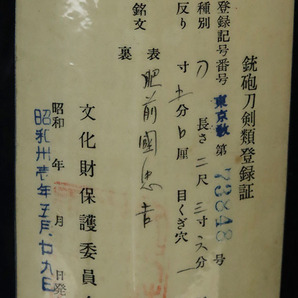 銃砲刀剣類登録証
登録記号番号 東京 第 73848 号
種別 刀 長さ 二尺 三寸 六分
反り 寸 五分 厘 目くぎ穴 一
銘文 表 肥前國忠吉
裏
文化財保護委員会
昭和 年 月 日発
昭和卅壱年五月廿九日